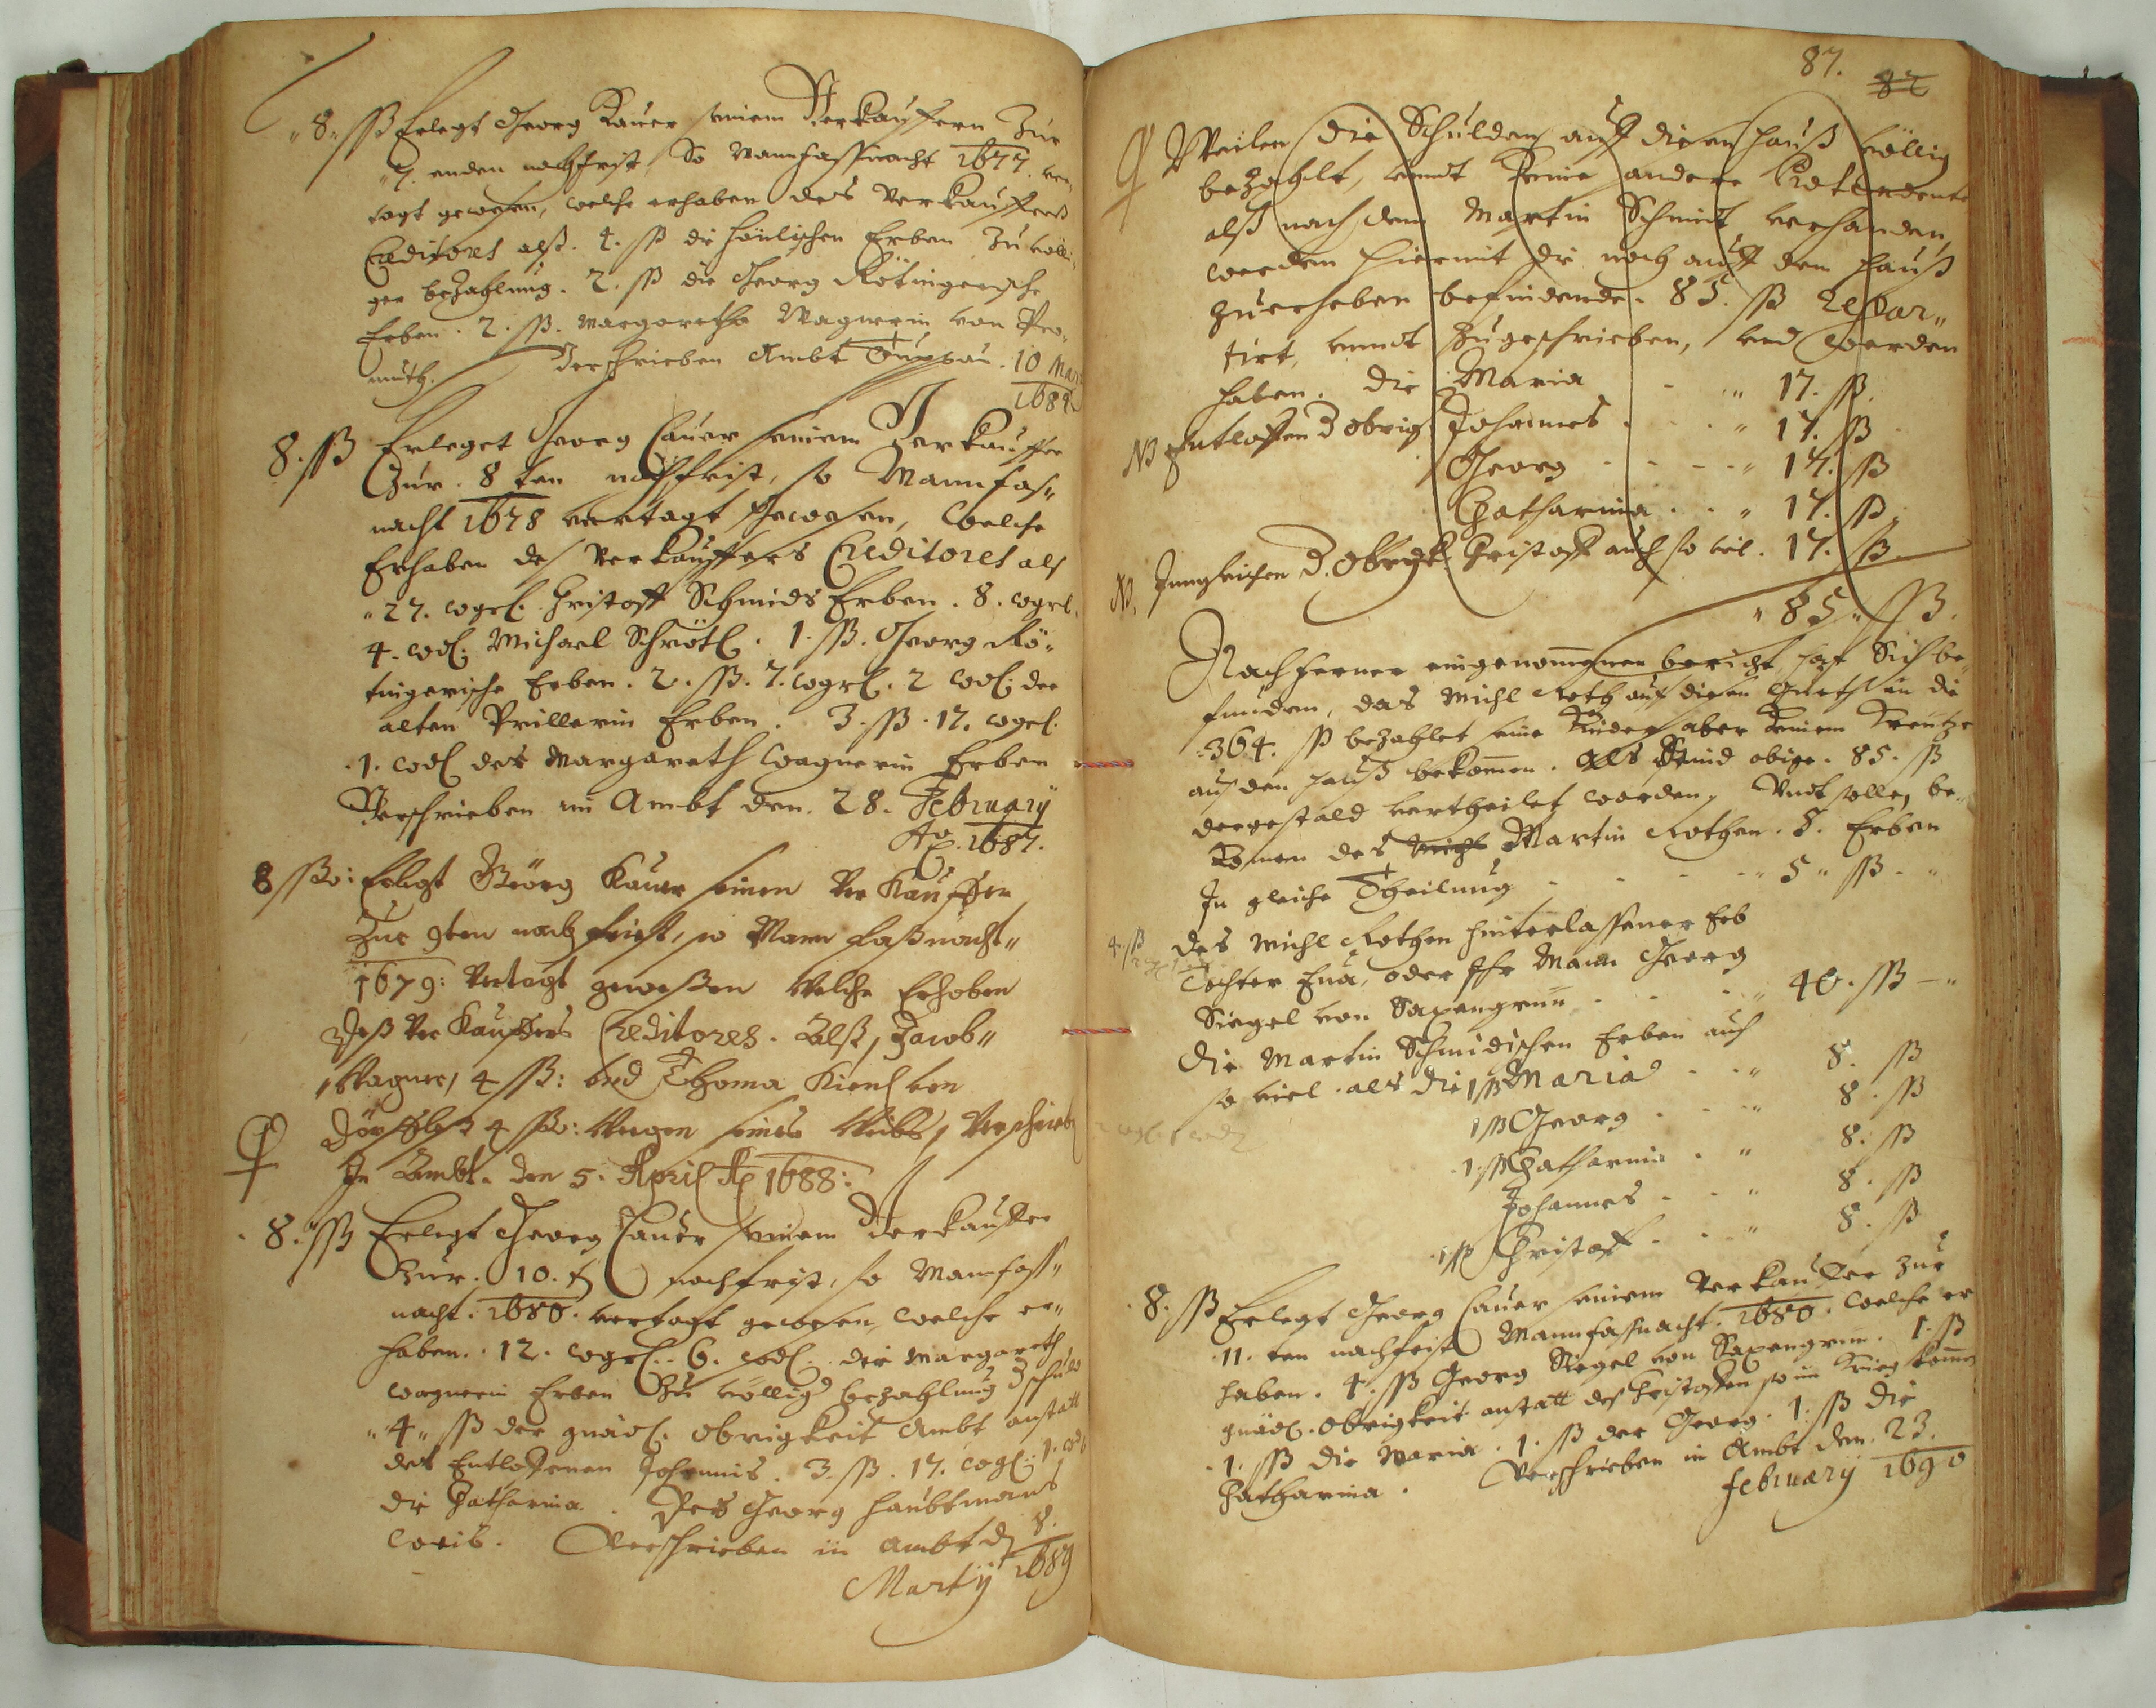 8. ßß Erlegt Georg Kauer seinem Verkauffern Zur
7. enden nachfrist, So Mannfassnacht 1677. ver¬
tagt gewesen, welche erhaben des Verkauffers
Creditores alß. 4. ßß die Erben Zu völli¬
ger bezahlung. 2. ßß die Georg Rötingerische
Erben. 2. ßß. Margaretha Wagnerin von
Verschrieben Ambt Duppau. 10 Mar
8. ßß Erleget Georg Cauer seinem Verkauffer
Zur. 8ten nachfrist, so Mannfas„
nacht 1678 vertagt gewesen, welche
Erhaben des Verkauffers Creditores als
27. wgrl. Christoff Schmids Erben. 8. wgrl.
4. wdl. Michael Schrötl. 1. ßß. Georg Rö„
tingerische Erben. 2. ßß. 7. wgrl. 2 wdl. der
alten Prillerin Erben. 3. ßß. 17. wgrl.
1. wdl der Margareth Wagnerin Erben
Verschrieben im Ambt den. 28. February
Ao. 1687.
8 ßßo: Erlegt Geörg Kauer seinen Ver Kauffer
Zur 9ten nach frist, so Mann faßnacht„
1679: Vertagt geweßen Welche Erhoben
Deß Ver Kauffers Creditores. Alß, Jacob„
Wagner, 4 ßß: vnd Thoma Kienl von
4 ßßo: Wegen seines Weibs, Verschrieb
In Ambt. den 5. April Ao 1688:
8. ßß Erlegt Georg Cauer seinem Verkauffer
Zur. 10. t nachfrist, so Mannfass„
nacht. 1680. vertagt gewesen, welche er„
haben. 12. wgrl. 6. wdl. der Margareth
Wagnerin Erben Zu völlig bezahlung d schuld
4 ßß der gnäd. Obrigkeit Ambt anstatt
des Entlofenen Johannis. 3. ßß. 17. wgl: 1. wdl
die Catharina. Des Georg Haubtmans
Weib. Verschrieben in Ambt d 8.
Marty 1689
87. 82
Weilen die Schulden auff diesen hauß völlig
bezahlt, vnndt Keine andere Pretendente
alß nach dem Martin Schmidt verhanden,
werden hiermit die noch auff dem hauß
zuerheben befindende. 85. ßß repar„
tirt, vnndt zugeschrieben, vnd werden
haben. Die Maria 17. ßß.
NB Entloffen d Obrig. Johannes 17. ßß
Georg 17. ßß
Catharina 17. ßß.
NB. d. Obrgk. Christoff auch so viel. 17. ßß.
85. ßß.
Nach ferner eingenommener bericht, hat Sich be¬
funden, das Michl Roth auf diesen an die
364. ßß bezahlet seine Kinder aber keinen Kreutzer
auf den hauß bekommen. Als Seind obige. 85. ßß
dergestald vertheilet worden, Vndt solle, be¬
komen des Michl Martin Rothen. 5. Erben
In gleiche Theilung 5 ßß.
4. ßß des Michl Rothen hinterlassener Erb
Tochter Eua, oder Ihr Mann Georg
Siegel von Saxengrün 40. ßß
Die Martin Schmidischen Erben auch
so viel als die 1 ßß Maria 8. ßß
1 ßß Georg 8. ßß
1 ßß Catharina 8. ßß
Johannes 8. ßß
1 ßß Christoff 8. ßß
8. ßß Erlegt Georg Cauer seinem Verkauffer zur
11. ten nachfrist Mannfassnacht. 1680. welche er
haben. 4. ßß Georg Siegel von Saxengrün. 1. ßß
gnäd. Obrigkeit anstatt des Christoffen so in Krieg komen
1. ßß die Maria. 1. ßß der Georg. 1. ßß die
Catharina. Verschrieben in Ambt den. 23.
February 1690